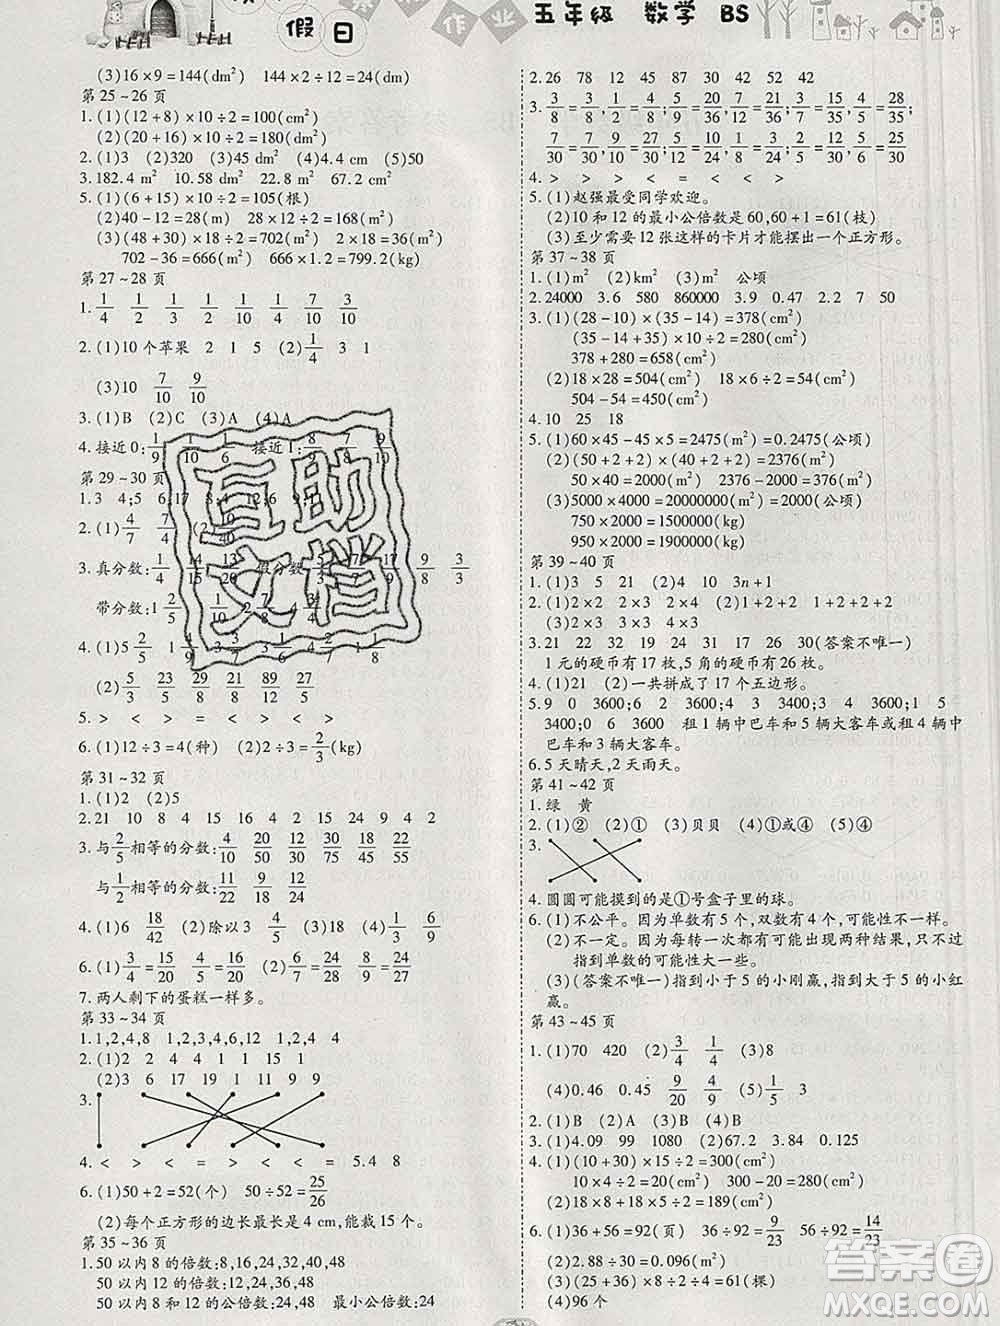 假日 作业 五年级 数学 BS
(3)16×9=144(dm²) 144×2÷12=24(dm)
第25~26页
1.(1)(12+8)×10÷2=100(cm²)
(2)(20+16)×10÷2=180(dm²)
2.(1)3 (2)320 (3)45(dm²) (4)4.4 (5)50
3.182.4 m² 10.58 dm² 22.8 m² 67.2 cm²
5.(1)(6+15)×10÷2=105(根)
(2)40-12=28(m) 28×12÷2=168(m²)
(3)(48+30)×18÷2=702(m²) 2×18=36(m²)
702-36=666(m²) 666×1.2=799.2(kg)
第27~28页
1. 1/4 1/2 1/3 1/2 1/9 1/3 1/2
2.(1)10个苹果 2 1 5 (2)1/4 3 1
(3)10 7/10 9/10
3.(1)B (2)C (3)A (4)A
4.接近0: 1/9 接近1: 8/9
第29~30页
1.3 4;5 6;17
2.(1)4/7 7/4 (2)
3.真分数:1/4 9/8 3/3
带分数:1 2/5
4.(1)5 1/2
(2)5/3 23/5 29/8 21/8 89/12 27/5
5.> < > < > <
6.(1)12÷3=4(种) (2)2÷3=2/3(kg)
第31~32页
1.(1)2 (2)5
2.21 10 8 4 15 16 4 24 9 4 2
3.与2/5相等的分数:4/10 20/50 12/30 30/75
与1/2相等的分数:15/30 25/50 50/100 6/12
4.(1)6 18/42 (2)除以3 4/5 (3)18 (4)3/4
6.(1)3/4=15/20 4/5=16/20 (2)5/6 7/8
7.两人剩下的蛋糕一样多。
第33~34页
1.1,2,4,8 1,2,3,4,6,12 1,2,4 4
2.(1)2 2 4 4 1 1 15 1
(2)3 6 17 19 1 11 9 9
3.
4.< < > < = < = > = 5.4 8
6.(1)50+2=52(个) 50÷52=25/26
(2)每个正方形的边长最长是4 cm,能裁15个。
第35~36页
1.50以内8的倍数:8,16,24,32,40,48
50以内12的倍数:12,24,36,48
50以内8和12的公倍数:24,48 最小公倍数:24
2.26 78 12 45 87 30 42 52 42
4.> > < < < <
5.(1)赵强最受同学欢迎。
(2)10和12的最小公倍数是60,60+1=61(枝)
(3)至少需要12张这样的卡片才能摆出一个正方形。
第37~38页
1.(1)m² (2)km² (3)m² 公顷
2.24000 3.6 580 860000 3.9 0.47 2.2 7 50
3.(1)(28-10)×(35-14)=378(cm²)
(35-14+35)×10÷2=280(cm²)
378+280=658(cm²)
(2)18×28=504(cm²) 18×6÷2=54(cm²)
504-54=450(cm²)
4.10 25 18
5.(1)60×45-45×5=2475(m²)=0.2475(公顷)
(2)(50+2+2)×(40+2+2)=2376(m²)
50×40=2000(m²) 2376-2000=376(m²)
(3)5000×4000=20000000(m²)=2000(公顷)
750×2000=1500000(kg)
950×2000=1900000(kg)
第39~40页
1.(1)3 5 21 (2)4 7 10 3n+1
2.(1)2×2 2×3 2×4 (2)1+2 1+2+2 1+2+2+2
(3)2×3 3×3 4×3
3.21 22 32 19 24 31 17 26 30(答案不唯一)
1元的硬币有17枚,5角的硬币有26枚。
4.(1)21 (2)一共拼成了17个五边形。
5.9 0 3600;6 2 3600;4 3 3400;3 4 3600;1 5
3400;0 6 3600 租1辆中巴车和5辆大客车或租4辆中
巴车和3辆大客车。
6.5天晴天,2天雨天。
第41~42页
1.绿 黄
2.(1)② (2)① (3)贝贝 (4)①或④ (5)④
3.
4.圆圆可能摸到的是①号盒子里的球。
6.(1)不公平。因为单数有5个,双数有4个,可能性不一样。
(2)不一定。因为每转一次都有可能出现两种结果,只不过
指到单数的可能性大一些。
(3)(答案不唯一)指到小于5的小刚赢,指到大于5的小红
赢。
第43~45页
1.(1)70 420 (2)3/4 1/4 (3)8
(4)0.46 0.45 9/20 4/9 (5)1/5 3
2.(1)B (2)A (3)B (4)B
3.(1)4.09 99 1080 (2)67.2 3.84 0.125
4.(1)(10+30)×15÷2=300(cm²)
10×4÷2=20(cm²) 300-20=280(cm²)
(2)18×8+18×5÷2=189(cm²)
6.(1)36+56=92(页) 36÷92=9/23 56÷92=14/23
(2)2.88÷30=0.096(m²)
(3)(36+25)×2÷2=61(棵)
(4)96个
互助文档
答案圈
MXQE.COM